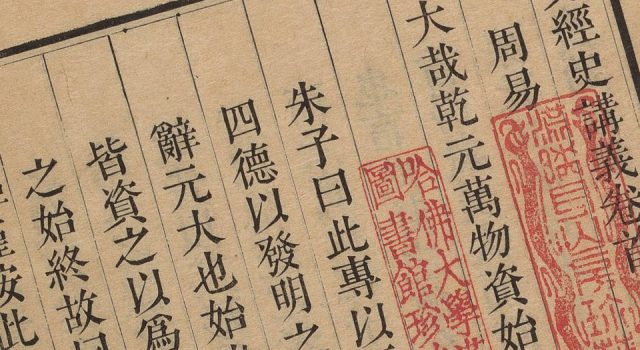 經史講義卷首
周易
大哉乾元萬物資始
朱子曰此專以
四德以發明之
辭元大也始
皆資之以爲
之始終故
按此
哈佛大學
圖書館珍